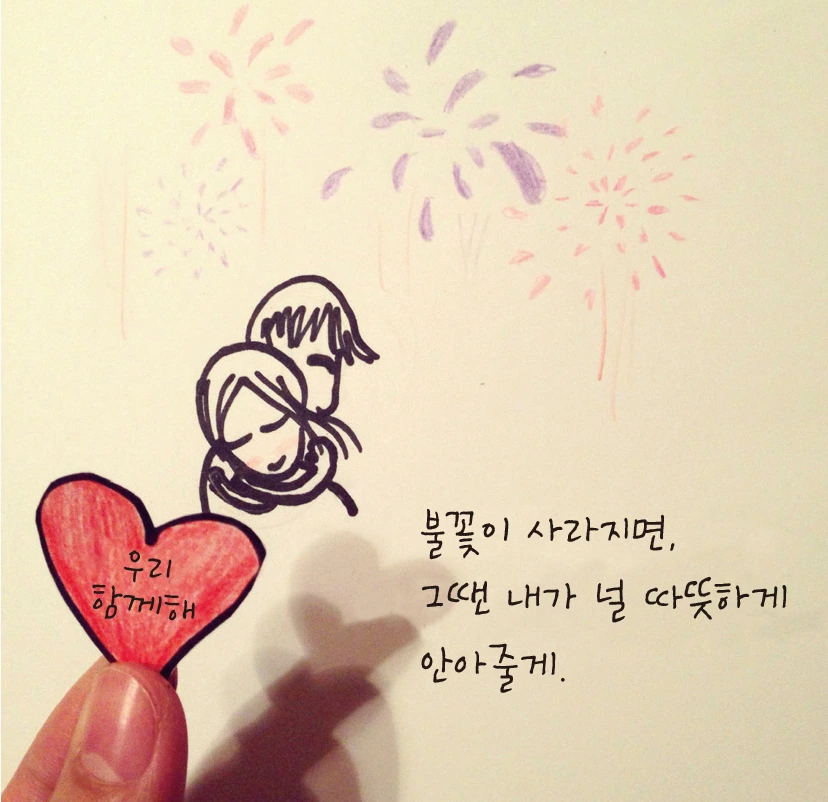 우리
함께해
불꽃이 사라지면,
그땐 내가 널 따뜻하게
안아줄게.